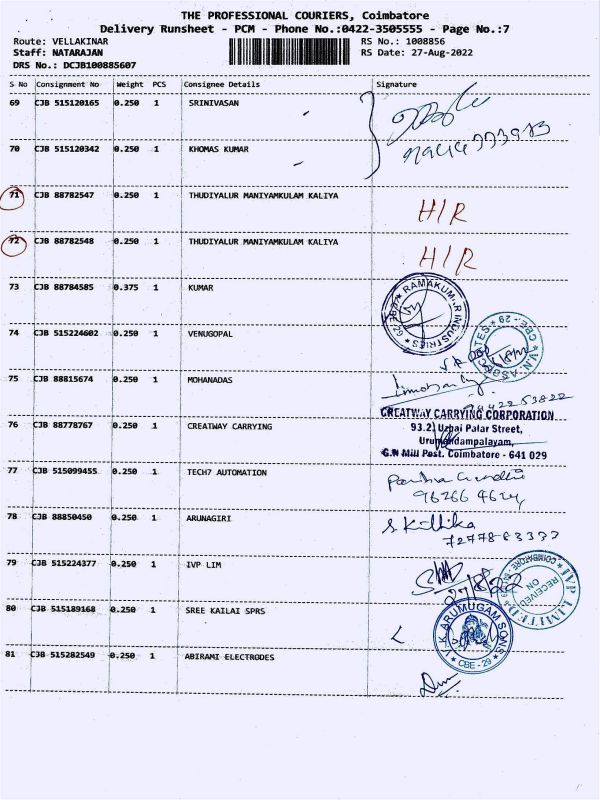 THE PROFESSIONAL COURIERS, Coimbatore
Delivery Runsheet - PCM - Phone No.:0422-3505555 - Page No.:7
Route: VELLAKINAR RS No.: 1008856
Staff: NATARAJAN RS Date: 27-Aug-2022
DRS No.: DCJB100885607
S No Consignment No Weight PCS Consignee Details Signature
69 CJB 515120165 0.250 1 SRINIVASAN
70 CJB 515120342 0.250 1 KHOMAS KUMAR
71 CJB 88782547 0.250 1 THUDIYALUR MANIYAMKULAM KALIYA H/R
72 CJB 88782548 0.250 1 THUDIYALUR MANIYAMKULAM KALIYA H/R
73 CJB 88784585 0.375 1 KUMAR
RAMAKUMAR INDUSTRIES
74 CJB 515224602 0.250 1 VENUGOPAL
V.N. ASSOCIATES CBE-29
75 CJB 88815674 0.250 1 MOHANADAS
9442253822
76 CJB 88778767 0.250 1 CREATWAY CARRYING
CREATWAY CARRYING CORPORATION
93.2, Uzhai Palar Street,
Urumandampalayam,
G.N Mill Post. Coimbatore - 641 029
77 CJB 515099455 0.250 1 TECH7 AUTOMATION
78 CJB 88850450 0.250 1 ARUNAGIRI
S Killika
79 CJB 515224377 0.250 1 IVP LIM
27/8/22
IVP LIMITED COIMBATORE
RECEIVED ON
80 CJB 515189168 0.250 1 SREE KAILAI SPRS
V.K. ARUMUGAM SONS CBE-29
81 CJB 515282549 0.250 1 ABIRAMI ELECTRODES